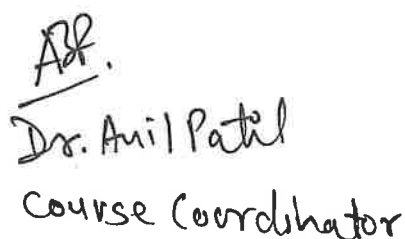 Dr. Anil Patil
Course Coordinator